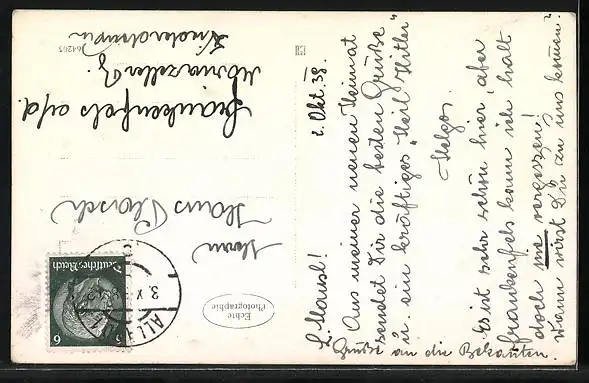 2. Okt. 38.
L. Mausl!
Aus meiner neuen Heimat
sendet Dir die besten Grüße
u. ein kräftiges "Heil Hitler"
Helga.
Es ist sehr schön hier, aber
Frankenfels kann ich halt
doch nie vergessen!
Wann wirst Du zu uns kommen?
Grüße an die Bekannten.
Echte
Photographie
Herrn
Hans
Frankenfels a/d.
Mariazeller
Niederdonau
Deutsches Reich
6 6
3. X